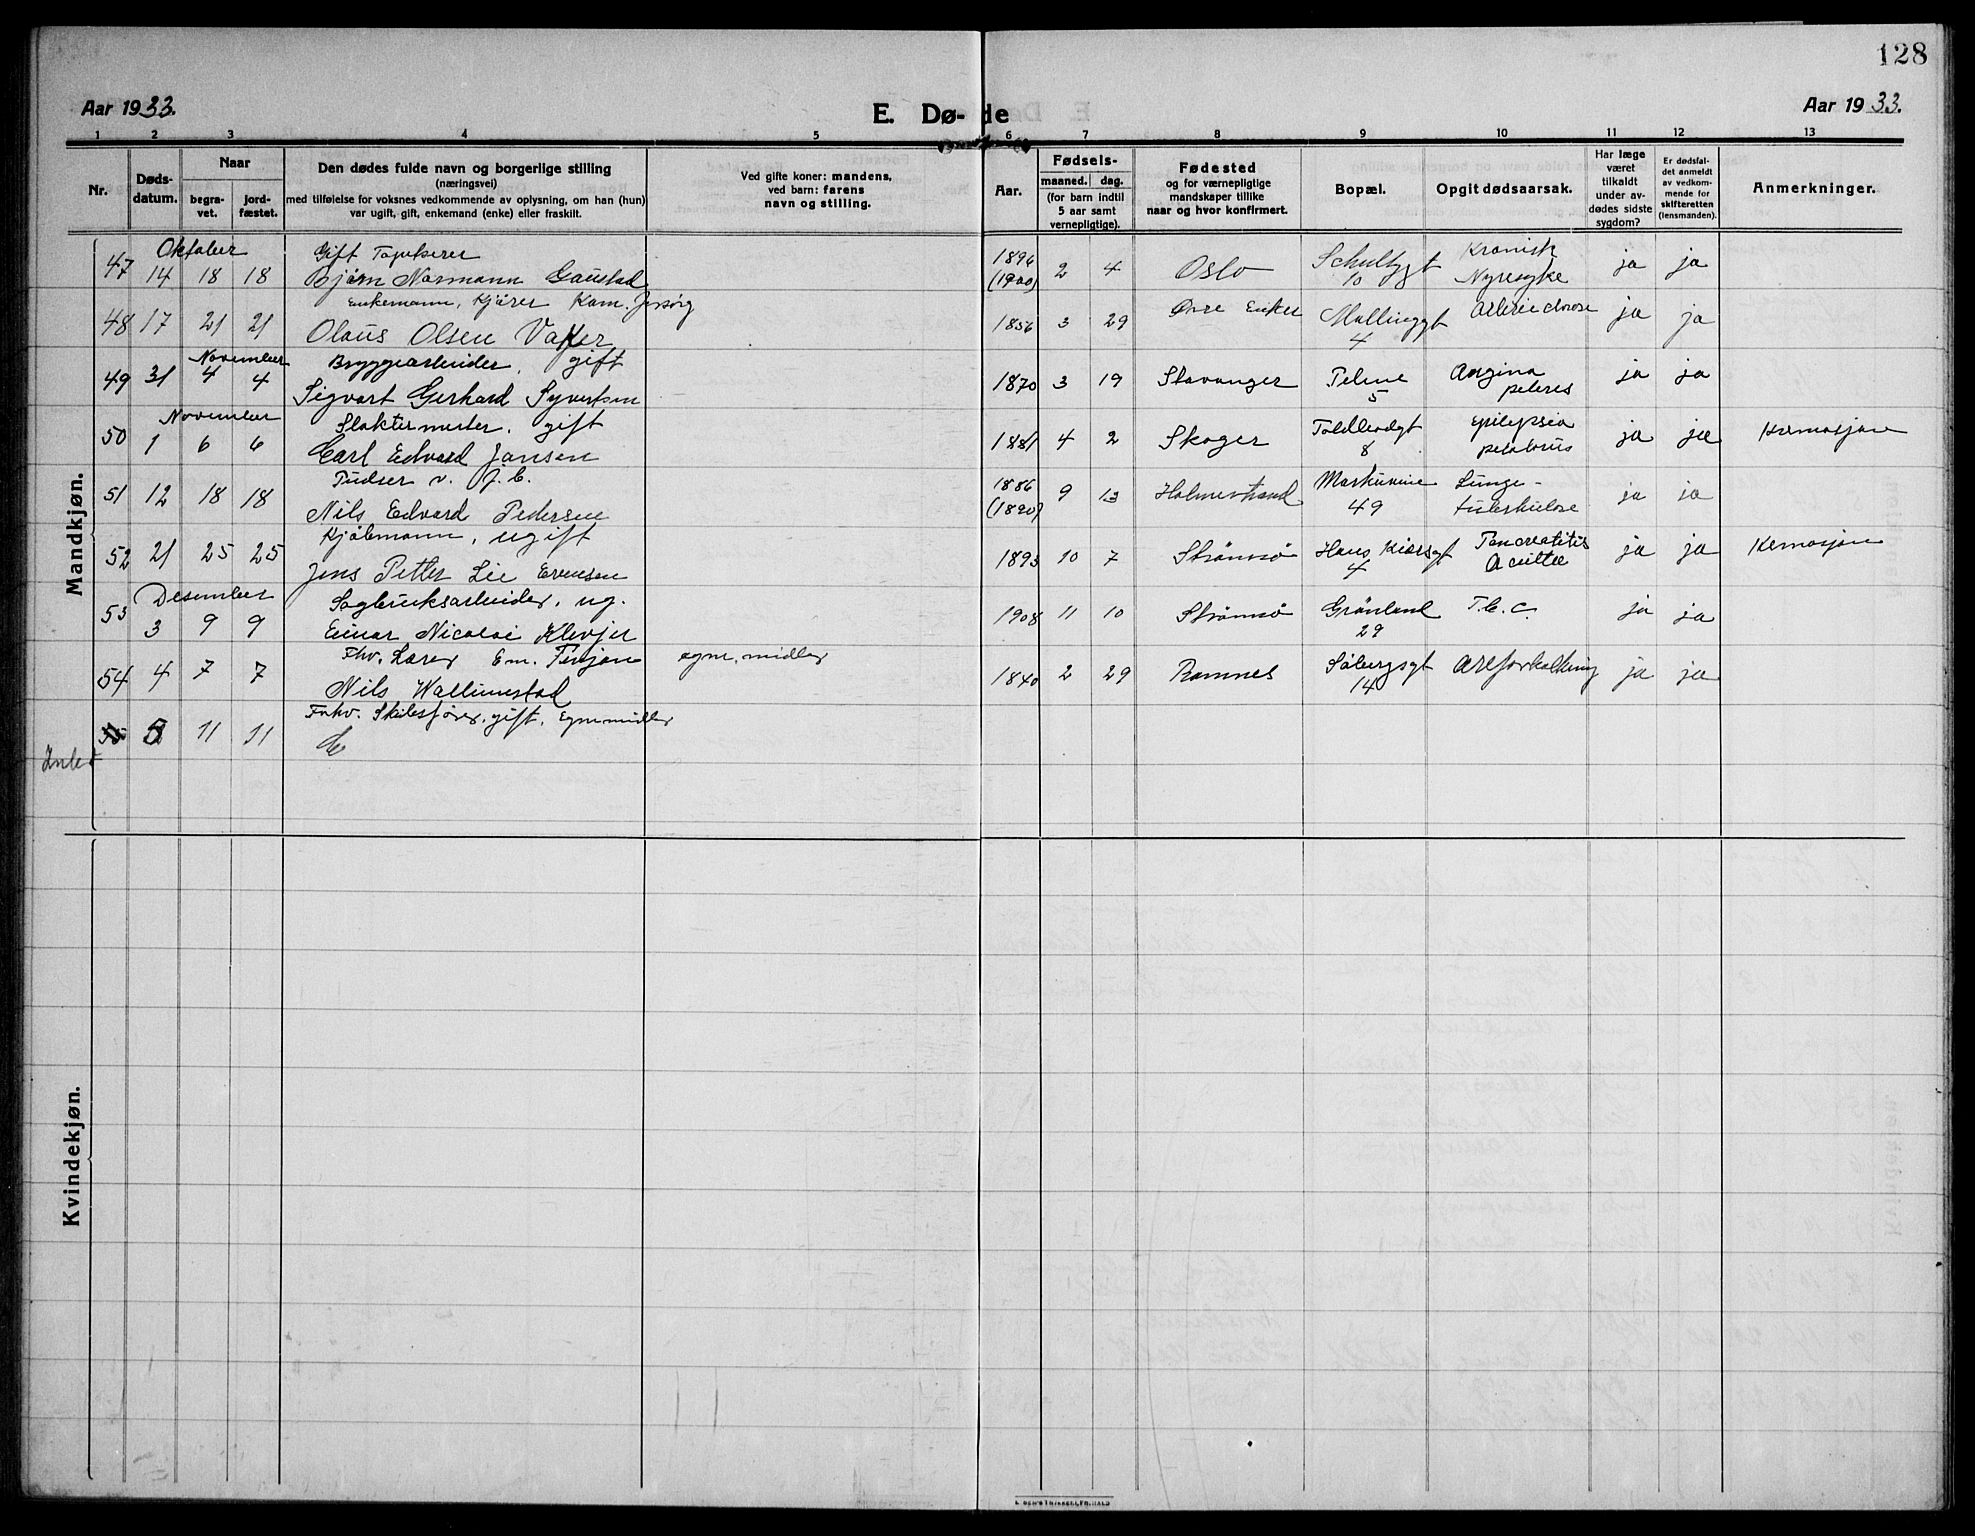 128
Aar 1933.
E. Dø- de
Aar 1933.
1 2 3 4 5 6 7 8 9 10 11 12 13
Nr.
Døds-
datum.
Naar
begra-
vet.
jord-
fæstet.
Den dødes fulde navn og borgerlige stilling
(næringsvei)
med tilføielse for voksnes vedkommende av oplysning, om han (hun)
var ugift, gift, enkemand (enke) eller fraskilt.
Ved gifte koner: mandens,
ved barn: farens
navn og stilling.
Aar.
Fødsels-
maaned. dag.
(for barn indtil
5 aar samt
vernepligtige).
Fødested
og for værnepligtige
mandskaper tillike
naar og hvor konfirmert.
Bopæl.
Opgit dødsaarsak.
Har læge
været
tilkaldt
under av-
dødes sidste
sygdom?
Er dødsfal-
det anmeldt
av vedkom-
mende for
skifteretten
(lensmanden).
Anmerkninger.
Mandkjøn.
Oktober Gift Tapetserer 1896 Schultzgt Kronisk
47 14 18 18 Bjørn Normann Gaustad (1900) 2 4 Oslo 10 Nyresyke ja ja
Enkemann, Kjører Kom.
48 17 21 21 Olaus Olsen Vaker 1856 3 29 Øvre Eiker Møllinggt 4 ja ja
November Bryggearbeider, gift
49 31 4 4 Sigvart Gerhard Syvertsen 1870 3 19 Stavanger Telme 5 Angina pectoris ja ja
November Slaktermester, gift
50 1 6 6 Carl Edvard Jansen 1881 4 2 Skoger 8 epilepsia ja ja Kremasjon
Pudser v. J. b. 1886
51 12 18 18 Nils Edvard Pedersen (1890) 9 13 Holmestrand 49 Lunge- tuberkulose ja ja
Kjølemann, ugift
52 21 25 25 Jens Petter Lie Evensen 1893 10 7 Strømsø Hans Kiærsgt 4 Pancreatitis Acuttæ ja ja Kremasjon
Desember Sagbruksarbeider, ug.
53 3 9 9 Einar Nicolai Klevjer 1908 11 10 Strømsø Grønland 29 T.b.c. ja ja
Fhv. Lærer Em. Pensjon egne midler
54 4 7 7 Nils Wallumstad 1840 2 29 Ramnes Søbergsgt 14 Areforkalkning ja ja
Forhv. Skibsfører, gift, Egne midler
55 5 11 11 C
Kvindekjøn.